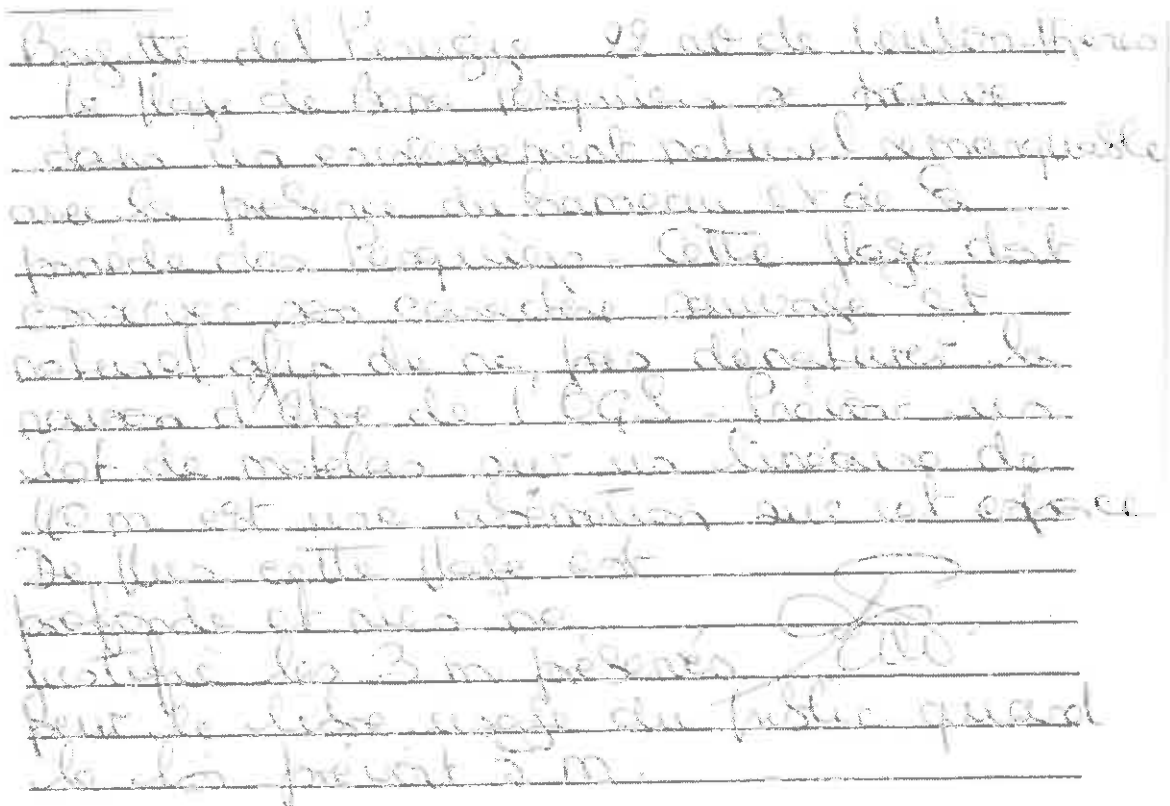 Brigitte del Perugia 29 av de Toulon Hyères
la plage de Bona Pesquiers se trouve
dans un environnement naturel remarquable
avec la présence du hameau et de la
pinède des Pesquiers. Cette plage doit
conserver son caractère sauvage et
naturel afin de ne pas dénaturer la
raison d'être de l'OGS. Prévoir un
lot de matelas sur un linéaire de
40 m est une aberration sur cet espace.
De plus cette plage est
profonde et rien ne
justifie les 3 m préservés
pour le libre usage du public quand
la loi prévoit 5 m.